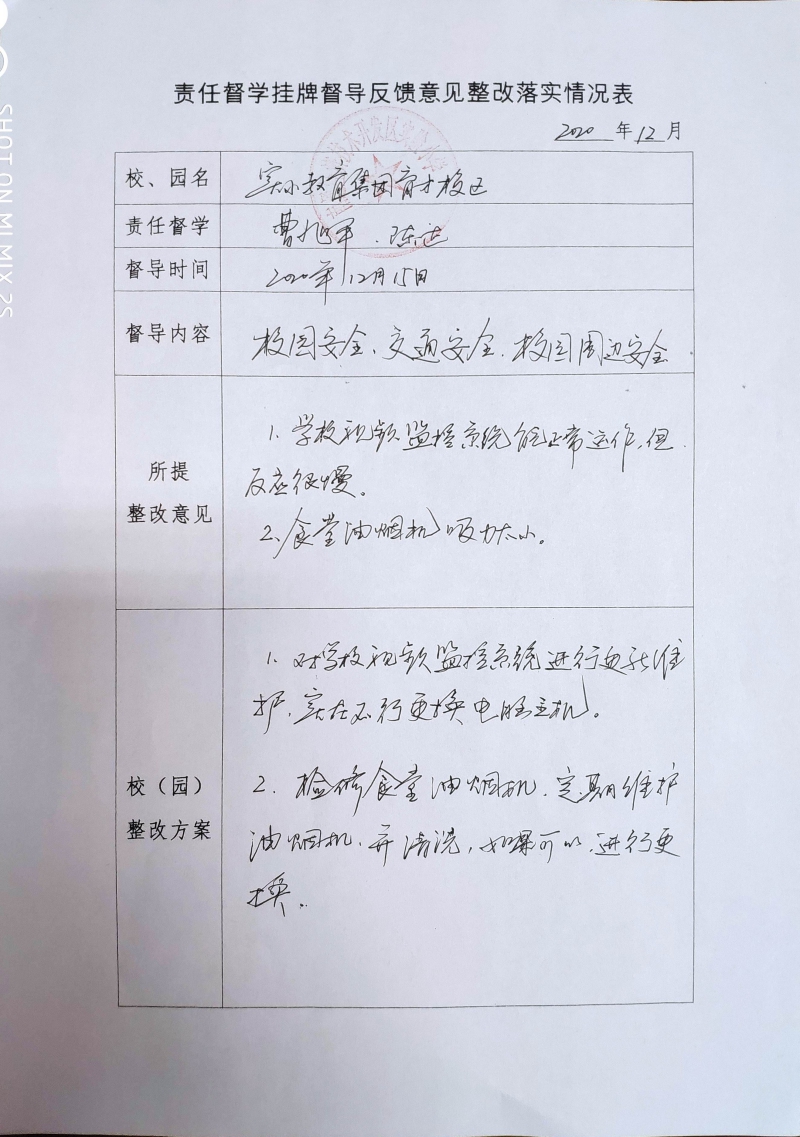 责任督学挂牌督导反馈意见整改落实情况表
2020 年 12 月
校、园名
实小教育集团育才校区
责任督学
曹兆军、陈
督导时间
2020年12月15日
督导内容
校园安全、交通安全、校园周边安全
所提
整改意见
1、学校视频监控系统能正常运作,但
反应很慢。
2、食堂油烟机吸力太小。
校(园)
整改方案
1、对学校视频监控系统进行更新维
护,实在不行更换电脑主机。
2、检修食堂油烟机,定期维护
油烟机,并清洗,如果可以,进行更
换。
技术开发区实验小学
SHOT ON MI MIX 2S